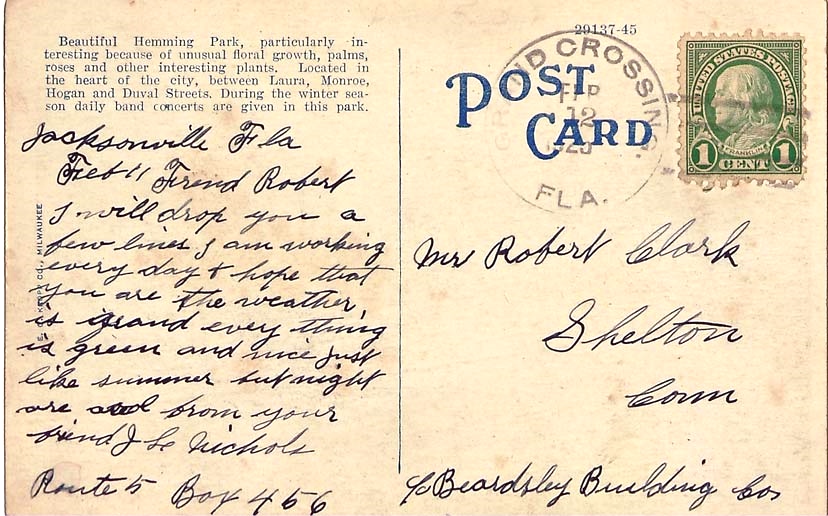 Beautiful Hemming Park, particularly in-
teresting because of unusual floral growth, palms,
roses and other interesting plants. Located in
the heart of the city, between Laura, Monroe,
Hogan and Duval Streets. During the winter sea-
son daily band concerts are given in this park.
Jacksonville Fla
Feb 11 Frend Robert
I will drop you a
few lines I am working
every day & hope that
you are the weather
is grand every thing
is green and nice just
like summer but night
are cool from your
friend J Le Nichols
Route 5 Box 456
KROPP CO., MILWAUKEE
29137-45
POST
CARD
GRAND CROSSING
FEB
12
FLA.
UNITED STATES POSTAGE
FRANKLIN
1 CENT 1
Mr Robert Clark
Shelton
Conn
c/o Beardsley Building Co